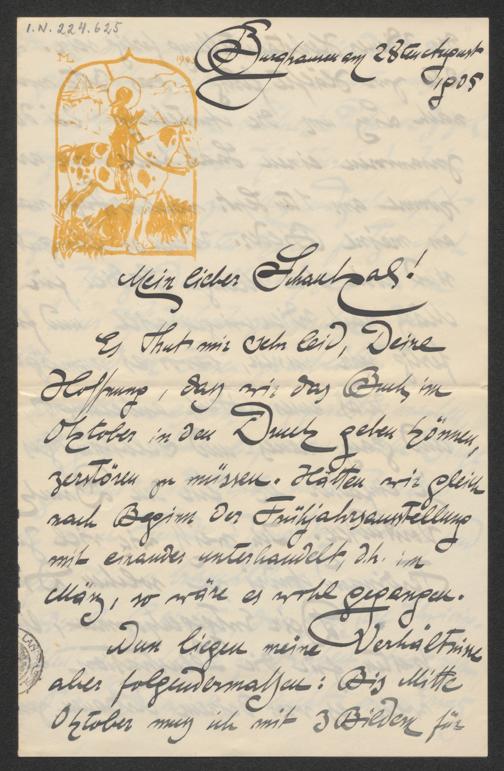 I.N. 224.625
ML
Burghausen am 28ten August
1905
Mein lieber Schaukal!
Es thut mir sehr leid, Deine
Hoffnung, dass wir das Buch im
Oktober in den Druck geben können,
zerstören zu müssen. Hätten wir gleich
nach Beginn der Frühjahrsausstellung
mit einander unterhandelt, d.h. im
März, so wäre es wohl gegangen.
Nun liegen meine Verhältnisse
aber folgendermassen: Bis Mitte
Oktober muss ich mit 3 Bildern für